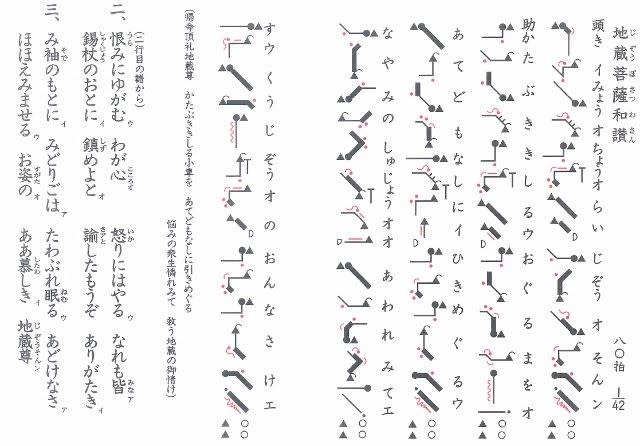 地蔵菩薩和讃 八〇拍 1/42
頭き イみょう オちょう オ らい じぞう オ そん ン
助 かたぶききしる ウ おぐるまを オ
あてどもなしに イ ひきめぐる ウ
なやみのしゅじょう オ オ あわれみて エ
す ウ くうじぞう オ のおんなさけ エ
(帰命頂礼地蔵尊 かたぶききしる小車を あてどもなしに引きめぐる
悩みの衆生憐れみて 救う地蔵の御情け)
(二行目の譜から)
二、恨みにゆがむゥ わが心オ 怒りにはやるゥ なれも皆ア
錫杖のおとにイ 鎮めよとオ 諭したもうぞ ありがたきイ
三、み袖のもとにイ みどりごはア たわぶれ眠るゥ あどけなさア
ほほえみませるゥ お姿のオ ああ慕しきイ 地蔵尊ン